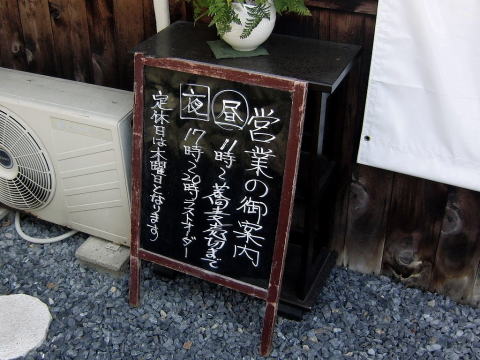 営業の御案内
昼 11時〜蕎麦売切まで
夜 17時〜20時ラストオーダー
定休日は木曜日となります